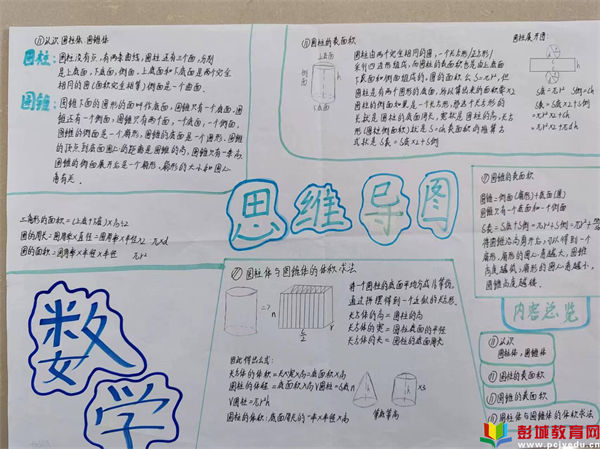 ① 认识 圆柱体 圆锥体
圆柱:圆柱没有点,有两条曲线,圆柱还有三个面,分别
是上底面,下底面,侧面,上底面和下底面是两个完全
相同的圆(面积完全相等)侧面是一个曲面。
圆锥:圆锥下面的圆形的面叫作底面,圆锥只有一个底面,圆
锥还有一个侧面,圆锥只有两个面,一个底,一个侧面,
圆锥的侧面是一个扇形,圆锥的底面是一个圆形。圆锥
的顶点到底面圆心的距离是圆锥的高,圆锥只有一条高
圆锥的侧面展开后是一个扇形、扇形的大小和圆心
角有关。
三角形的面积=(上底+下底)×高÷2
圆的周长=圆周率×直径=圆周率×半径×2 πd
圆的面积=圆周率×半径×半径 πr²
数学
思维导图
圆柱的表面积
上底面
侧面
h
下底面
圆柱由两个完全相同的圆,一个长方形/正方形/
平行四边形组成,而圆柱的表面积也是由上底面
下底面和侧面组成的,圆的面积公式S=πr²,但
圆柱是有两个圆形的底面,所以算出来的面积要×2
圆柱的侧面如果是一个长方形,
长就是圆柱的底面周长,宽就是圆柱的高,长方
形(圆柱侧面积)就是S=ch 表面积的推算方
式就是S表=S底×2+S侧
圆柱展开图:
h
S底=πr² S侧=ch
S表=S底×2+S侧
=πr²×2+ch
=πr²×2+πdh
圆锥的表面积
圆锥=侧面(扇形)+底面(圆)
圆锥只有一个底面和一个侧面
S表=S底+S侧=πr²+S侧=πr²+
将圆锥沿高剪开后,可以得到一个
扇形,扇形的圆心角越大,圆锥
高度越低;扇形的圆心角越小,
圆锥高度越高。
内容总览
① 认识
圆柱体,圆锥体
圆柱的表面积
圆锥的表面积
圆柱体与圆锥体的体积求法
圆柱体与圆锥体的体积求法
将一个圆柱的底面平均分成几等份,
直过拼摆得到一个近似的长方形。
长方体的高=圆柱的高
长方体的宽=圆柱底面的半径
长方体的长=圆柱的底面周长
h
r
由此得出公式:
长方体的体积=长×宽×高=底面积×高
圆柱的体积=底面积×高 V圆柱=S底h
V圆柱=πr²h
圆柱的体积:底面周长的一半×半径×高
×3
等底等高
彭城教育网
www.pcjyedu.cn